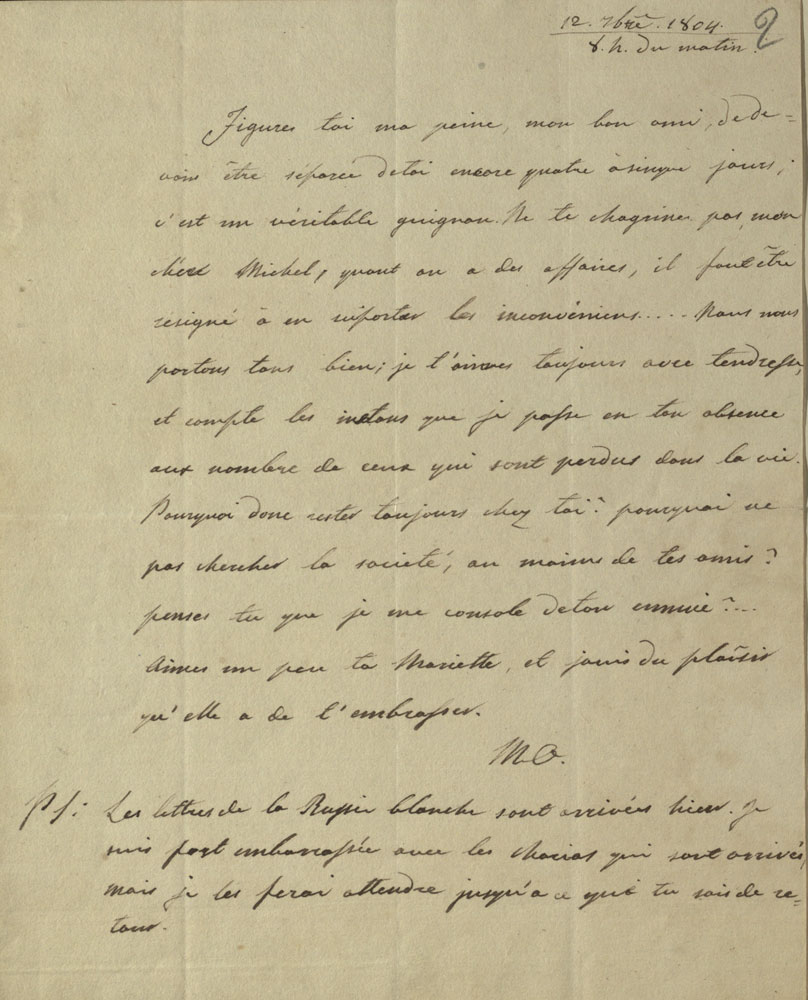 12. 7bre. 1804. 2
8. h. du matin.
Figures toi ma peine, mon bon ami, de de=
voir être séparée de toi encore quatre à sinque jours;
c'est un véritable guignon. Ne te chagrines pas, mon
cher Michel, quant on a des affaires, il faut être
resigné à en suporter les inconvéniens..... Nous nous
portons tous bien; je t'aimes toujours avec tendresse,
et compte les instans que je passe en ton absence
aux nombre de ceux qui sont perdus dans la vie.
Pourquoi donc rester toujours chez toi? pourquoi ne
pas chercher la societé, au moins de tes amis?
penses tu que je me console de ton ennuie?...
Aimes un peu ta Mariette, et jouis du plaisir
qu'elle a de t'embrasser.
M.O.
PS: Les lettres de la Russie blanche sont arrivées hier. Je
suis fort embarrassée avec les qui sont arrivés,
mais je les ferai attendre jusqu'a ce que tu sois de re=
tour.